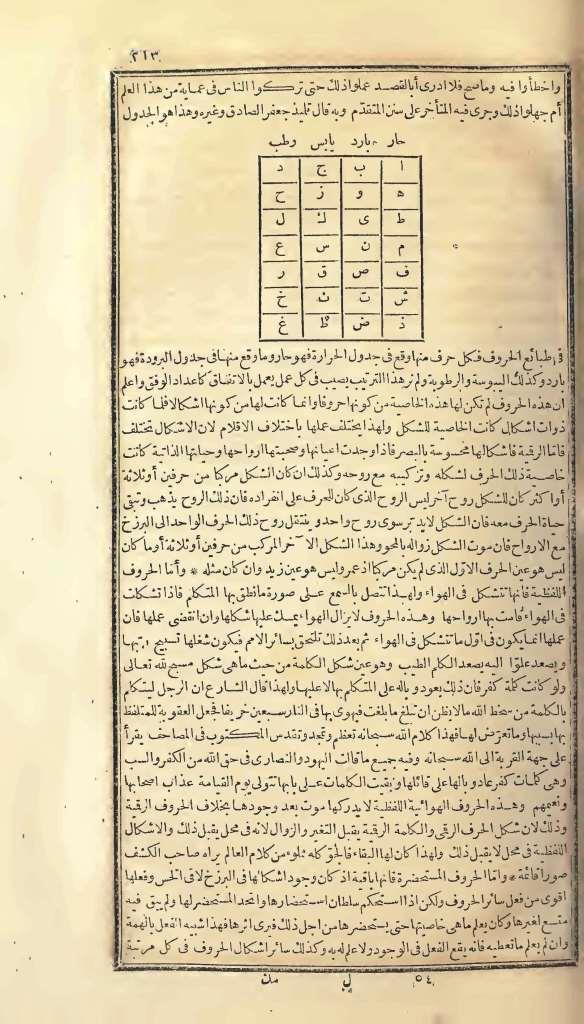 ٢١٣
واخطأوا فيه وماصح فلا ادرى أبالقصد عملوا ذلك حتى تركوا الناس فى عماية من هذا العلم
أم جهلوا ذلك وجرى فيه المتأخر على سنن المتقدم وبه قال تلميذ جعفر الصادق وغيره وهذا هو الجدول
حار بارد يابس رطب
ا ب ج د
ه و ز ح
ط ى ك ل
م ن س ع
ف ص ق ر
ش ت ث خ
ذ ض ظ غ
فى طبائع الحروف فكل حرف منها وقع فى جدول الحرارة فهو حار وما وقع منها فى جدول البرودة فهو
بارد وكذلك اليبوسة والرطوبة ولم نر هذا الترتيب يصيب فى كل عمل بل يعمل بالاتفاق كاعداد الوفق واعلم
ان هذه الحروف لم تكن لها هذه الخاصية من كونها حروفا وانما كانت لها من كونها اشكالا فلما كانت
ذوات اشكال كانت الخاصية للشكل ولهذا يختلف عملها باختلاف الاقلام لان الاشكال تختلف
فاما الرقمية فاشكالها محسوسة بالبصر فاذا وجدت اعيانها وصحبتها ارواحها وحياتها الذاتية كانت
خاصية ذلك الحرف لشكله وتركيبه مع روحه وكذلك ان كان الشكل مركبا من حرفين أو ثلاثة
أو اكثر كان للشكل روح آخر ليس الروح الذى كان للحرف على انفراده فان ذلك الروح يذهب وتبقى
حياة الحرف معه فان الشكل لا يدبره سوى روح واحد وينتقل روح ذلك الحرف الواحد الى البرزخ
مع الارواح فان موت الشكل زواله بالمحو وهذا الشكل الآخر المركب من حرفين أو ثلاثة أو ما كان
ليس هو عين الحرف الاول الذى لم يكن مركبا اذ عمرو ليس هو عين زيد وان كان مثله * وأما الحروف
اللفظية فانها تتشكل فى الهواء ولهذا تتصل بالسمع على صورة ما نطق بها المتكلم فاذا تشكلت
فى الهواء قامت بها ارواحها وهذه الحروف لا يزال الهواء يمسك عليها شكلها وان انقضى عملها فان
عملها انما يكون فى اول ما تتشكل فى الهواء ثم بعد ذلك تلتحق بسائر الامم فيكون شغلها تسبيح ربها
ويصعد علوا اليه يصعد الكلم الطيب وهو عين شكل الكلمة من حيث ما هى شكل مسبح لله تعالى
ولو كانت كلمة كفر فان ذلك يعود وباله على المتكلم بها لا عليها ولهذا قال الشارع ان الرجل ليتكلم
بالكلمة من سخط الله ما لا يظن ان تبلغ ما بلغت فيهوى بها فى النار سبعين خريفا فجعل العقوبة للمتلفظ
بها بسببها وما تعرض لها فهذا كلام الله سبحانه تعظم وتمجد وتقدس المكتوب فى المصاحف يقرأ
على جهة القربة الى الله سبحانه وفيه جميع ما قالت اليهود والنصارى فى حق الله من الكفر والسب
وهى كلمات كفر عاد وبالها على قائلها وبقيت الكلمات على بابها تتولى يوم القيامة عذاب اصحابها
ونعيمهم وهذه الحروف الهوائية اللفظية لا يدركها موت بعد وجودها بخلاف الحروف الرقمية
وذلك لان شكل الحرف الرقمى والكلمة الرقمية يقبل التغير والزوال لانه فى محل يقبل ذلك والاشكال
اللفظية فى محل لا يقبل ذلك ولهذا كان لها البقاء فالجو كله مملوء من كلام العالم يراه صاحب الكشف
صورا قائمة * واما الحروف المستحضرة فانها باقية اذ كان وجود اشكالها فى البرزخ لا فى الحس وفعلها
اقوى من فعل سائر الحروف ولكن اذا استحكم سلطان استحضارها واتحد المستحضر لها ولم يبق فيه
متسع لغيرها وكان يعلم ما هى خاصيتها حتى يستحضرها من اجل ذلك فيرى اثرها فهذا شبيه الفعل بالهمة
وان لم يعلم ما تعطيه فانه يقع الفعل فى الوجود ولا علم له به وكذلك سائر اشكال الحروف فى كل مرتبة
٥٤ ل مك